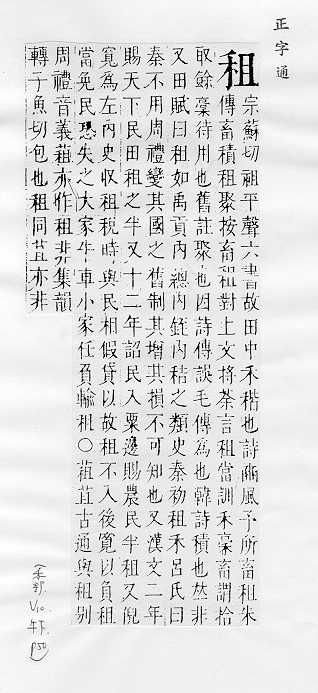 正字通
租
宗蘇切祖平聲六書故田中禾稭也詩豳風予所蓄租朱
傳蓄積租聚按蓄租對上文捋荼言租當訓禾稾蓄謂拾
取餘稾待用也舊註聚也因詩傳誤毛傳爲也韓詩積也𠀤非
又田賦曰租如禹貢內緫內銍內秸之類史秦初租禾呂氏曰
秦不用周禮變其國之舊制其增其損不可知也又漢文二年
賜天下民田租之半又十二年詔民入粟邊賜農民半租又倪
寬爲左內史收租稅時與民相假貸以故租不入後寬以負租
當免民恐失之大家牛車小家任負輸租○葅苴古通與租別
周禮音義葅亦作租非集韻
轉子魚切包也租同苴亦非
禾部.
V10.
午下.
P50